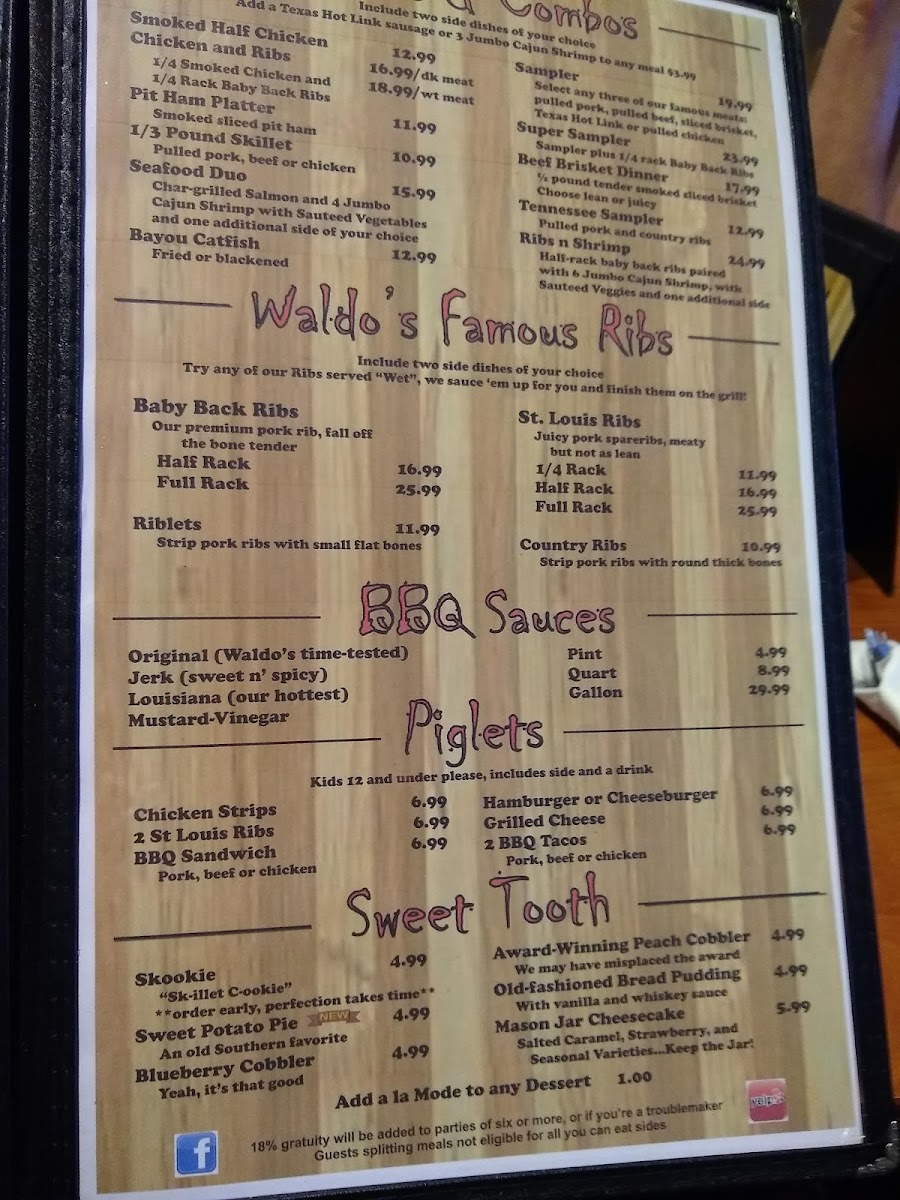 Combos
Include two side dishes of your choice
Add a Texas Hot Link sausage or 3 Jumbo Cajun Shrimp to any meal $3.99
Smoked Half Chicken 12.99
Chicken and Ribs 16.99/dk meat
1/4 Smoked Chicken and 18.99/wt meat
1/4 Rack Baby Back Ribs
Pit Ham Platter 11.99
Smoked sliced pit ham
1/3 Pound Skillet 10.99
Pulled pork, beef or chicken
Seafood Duo 15.99
Char-grilled Salmon and 4 Jumbo
Cajun Shrimp with Sauteed Vegetables
and one additional side of your choice
Bayou Catfish 12.99
Fried or blackened
Sampler 19.99
Select any three of our famous meats:
pulled pork, pulled beef, sliced brisket,
Texas Hot Link or pulled chicken
Super Sampler 23.99
Sampler plus 1/4 rack Baby Back Ribs
Beef Brisket Dinner 17.99
pound tender smoked sliced brisket
Choose lean or juicy
Tennessee Sampler 12.99
Pulled pork and country ribs
Ribs n Shrimp 24.99
Half-rack baby back ribs paired
with 6 Jumbo Cajun Shrimp, with
Sauteed Veggies and one additional side
Waldo's Famous Ribs
Include two side dishes of your choice
Try any of our Ribs served "Wet", we sauce 'em up for you and finish them on the grill!
Baby Back Ribs
Our premium pork rib, fall off
the bone tender
Half Rack 16.99
Full Rack 25.99
Riblets 11.99
Strip pork ribs with small flat bones
St. Louis Ribs
Juicy pork spareribs, meaty
but not as lean
1/4 Rack 11.99
Half Rack 16.99
Full Rack 25.99
Country Ribs 10.99
Strip pork ribs with round thick bones
BBQ Sauces
Original (Waldo's time-tested)
Jerk (sweet n' spicy)
Louisiana (our hottest)
Mustard-Vinegar
Pint 4.99
Quart 8.99
Gallon 29.99
Piglets
Kids 12 and under please, includes side and a drink
Chicken Strips 6.99
2 St Louis Ribs 6.99
BBQ Sandwich 6.99
Pork, beef or chicken
Hamburger or Cheeseburger 6.99
Grilled Cheese 6.99
2 BBQ Tacos 6.99
Pork, beef or chicken
Sweet Tooth
Skookie 4.99
"Sk-illet C-ookie"
**order early, perfection takes time**
Sweet Potato Pie NEW 4.99
An old Southern favorite
Blueberry Cobbler 4.99
Yeah, it's that good
Award-Winning Peach Cobbler 4.99
We may have misplaced the award
Old-fashioned Bread Pudding 4.99
With vanilla and whiskey sauce
Mason Jar Cheesecake 5.99
Salted Caramel, Strawberry, and
Seasonal Varieties...Keep the Jar!
Add a la Mode to any Dessert 1.00
18% gratuity will be added to parties of six or more, or if you're a troublemaker
Guests splitting meals not eligible for all you can eat sides
f
yelp